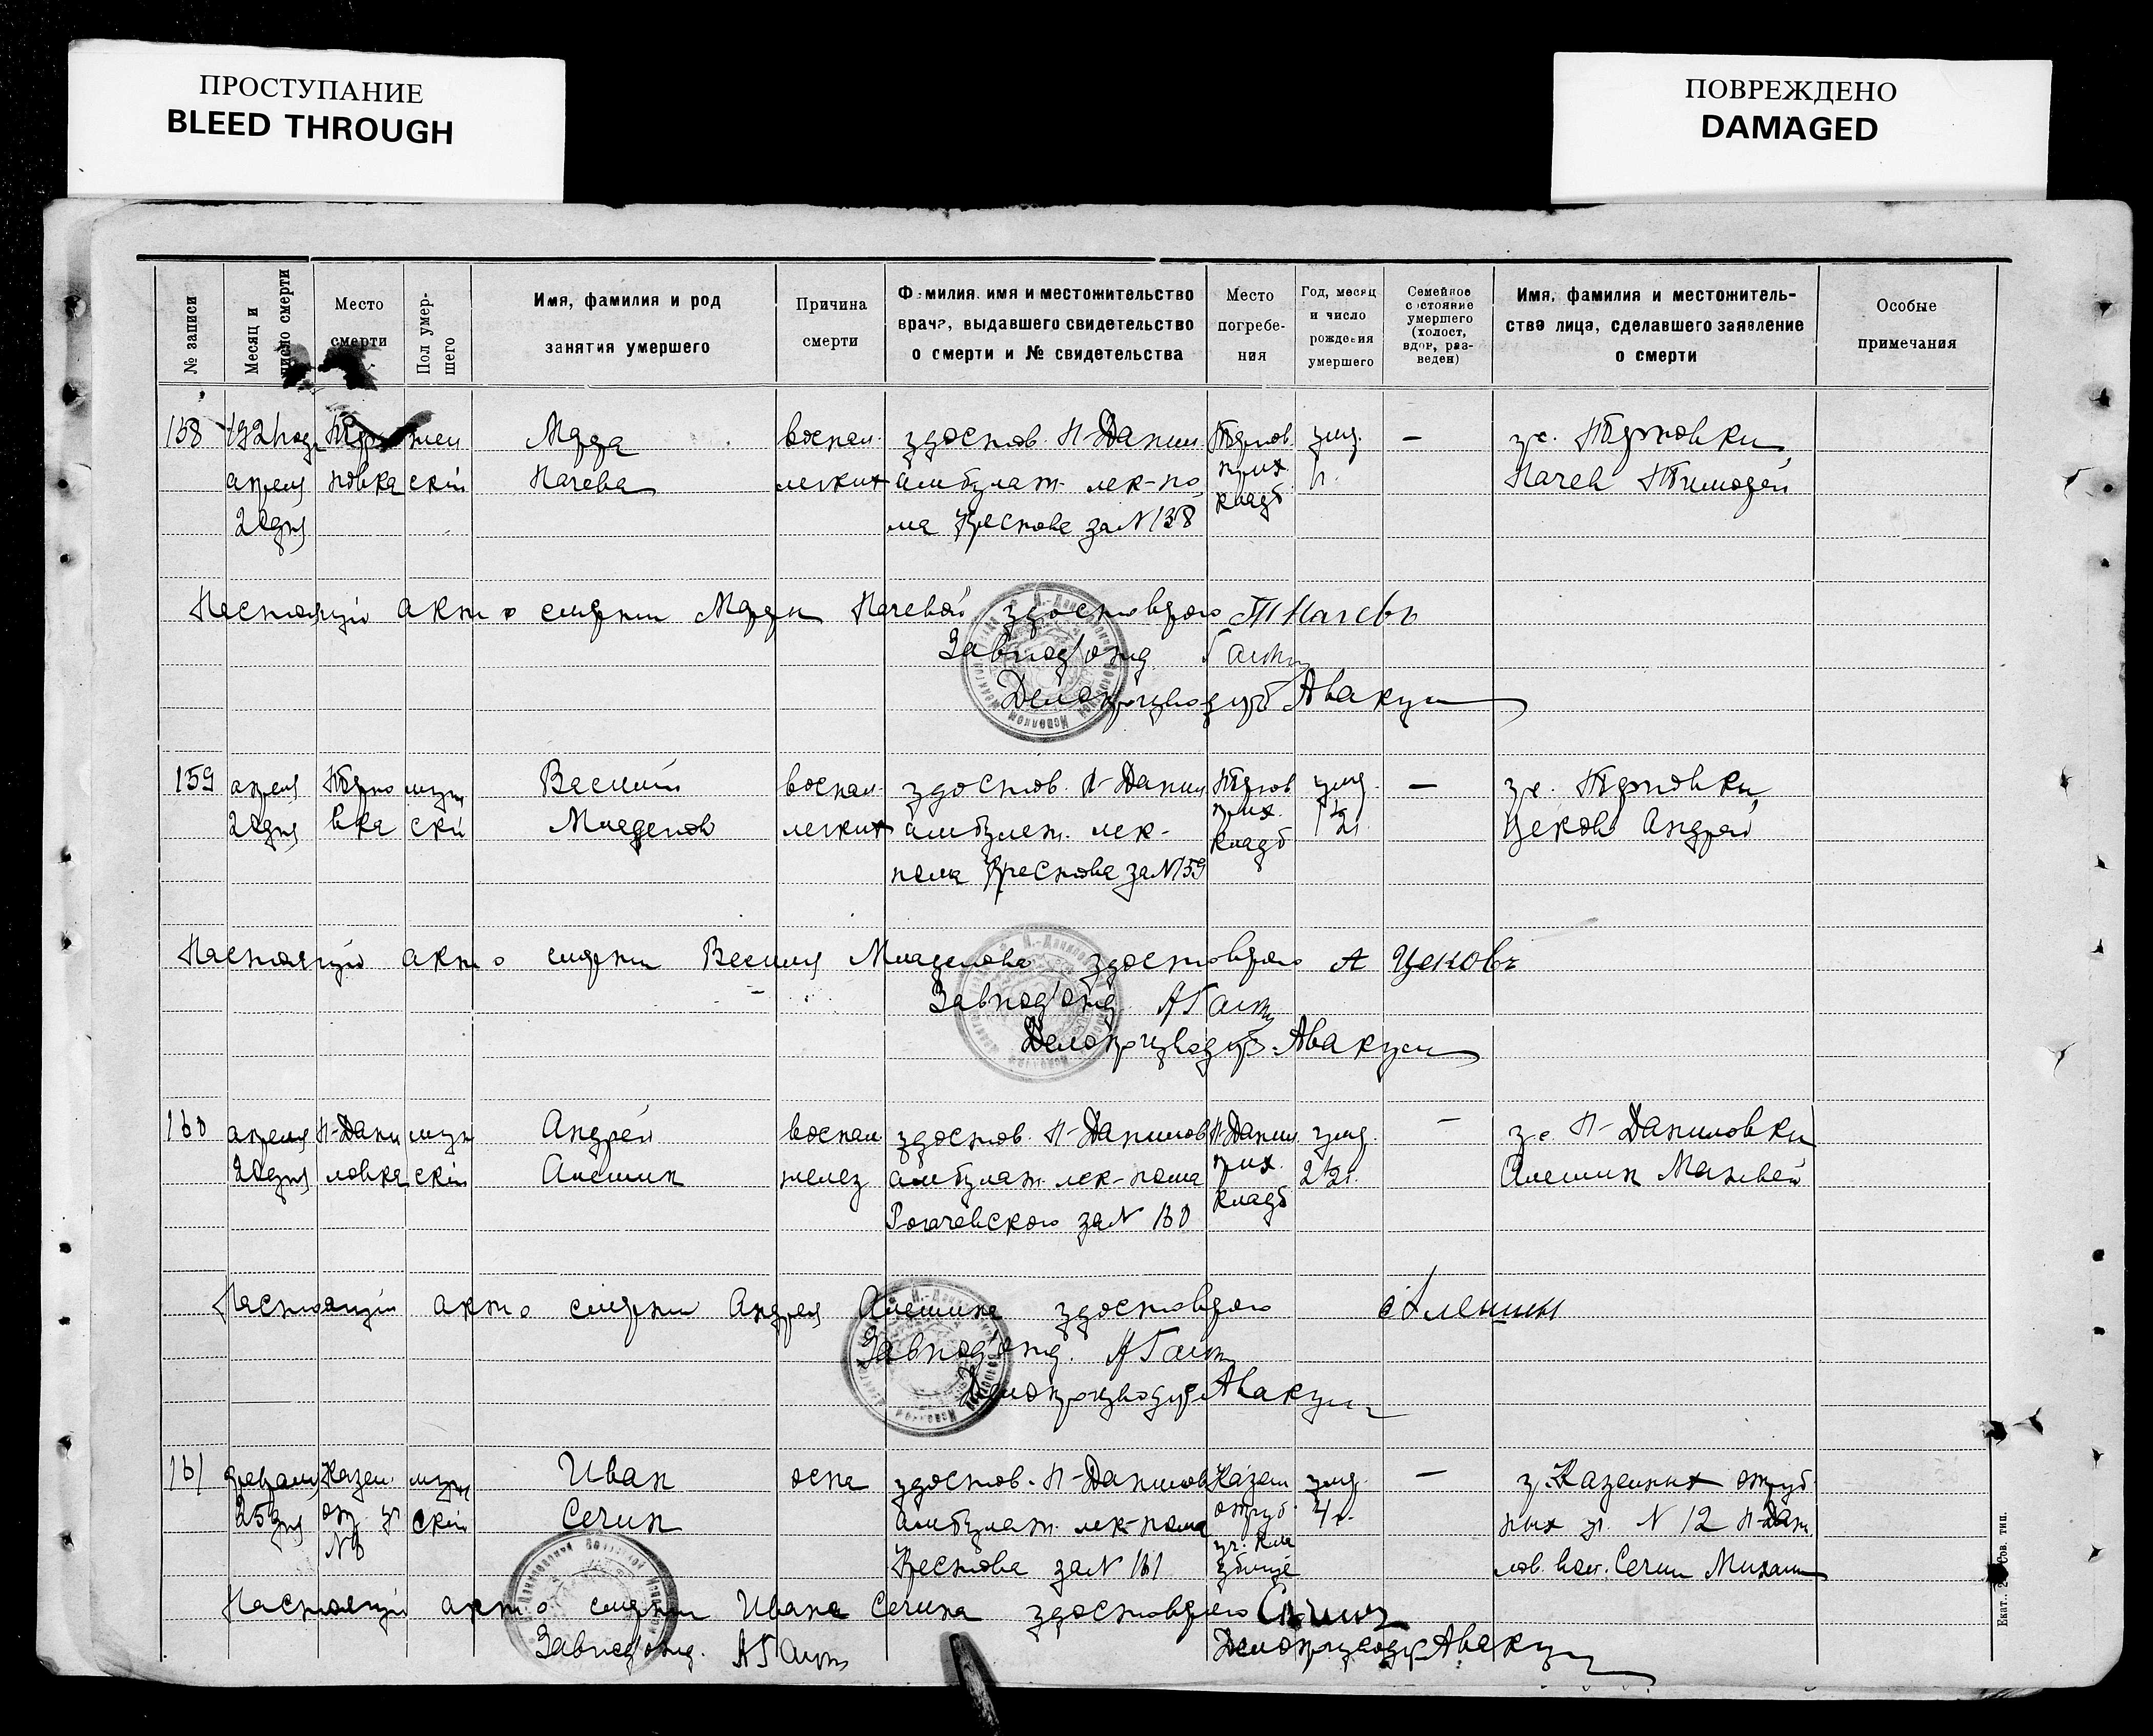 ПРОСТУПАНИЕ
BLEED THROUGH
ПОВРЕЖДЕНО
DAMAGED
№ записи
Месяц и число смерти
Место смерти
Пол умер-шего
Имя, фамилия и род занятия умершего
Причина смерти
Фамилия, имя и местожительство врача, выдавшего свидетельство о смерти и № свидетельства
Место погребе-ния
Год, месяц и число рождения умершего
Семейное состояние умершего (холост, вдов, раз-веден)
Имя, фамилия и местожитель-ство лица, сделавшего заявление о смерти
Особые примечания
158 апреля новка ский
Марфа Начева
воспал. легких
здостов. Н-Данил
амбулат. лек-по
ма Креснова за N 158
Терпов. прих. кладб
—
Терновки
Начев Тимофей
Настоящий акт о смерти Марфы Начевой здостоверяю Т Начевъ
Завпод'отд
Делопроизводит Авакум
159 апреля Терно вка муж ский
Василий Младенов
воспал. легких
здостов. Н-Данил
амбулат. лек-
пома Креснова за N 159
Тернов прих. кладб
1½ г.
—
Терновки
Цеков Андрей
Настоящий акт о смерти Василия Младенова здостоверяю А Цековъ
Завпод'отд
Делопроизводит. Авакум
160 апреля Н-Дани ловка муж ский
Андрей Алешин
воспал желез
здостов. Н-Данилов
амбулат. лек-пома
Рогачевского за N 160
Н-Данил прих. кладб
2½ г.
—
Н-Даниловки
Алешин Матвей
Настоящий акт о смерти Андрея Алешина здостоверяю Алешин
Завпод'отд.
Делопроизводит Авакум
161 февраля 25 дня Казен. N 8 муж ский
Иван Сечин
оспа
здостов. Н-Данилов
амбулат. лек-пома
Креснова за N 161
Казен отруб
4 г.
—
Казенных отруб
ных N 12 Н-Дан
лов. вол. Сечин Михаил
Настоящий акт о смерти Ивана Сечина здостоверяю Сечин
Завпод'отд.
Делопроизводит Авакум
Екат., 2 Сов. тип.